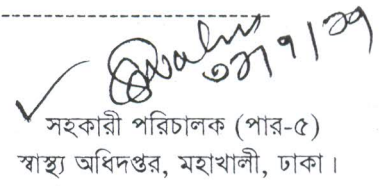 সহকারী পরিচালক (পার-৫)
স্বাস্থ্য অধিদপ্তর, মহাখালী, ঢাকা।